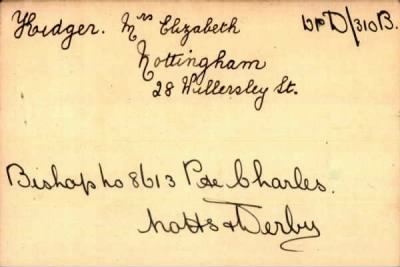 Hidger. Mrs Elizabeth WPD/310B.
Nottingham
28 Willersley St.
Bishop no 8613 Pte Charles.
Notts & Derby